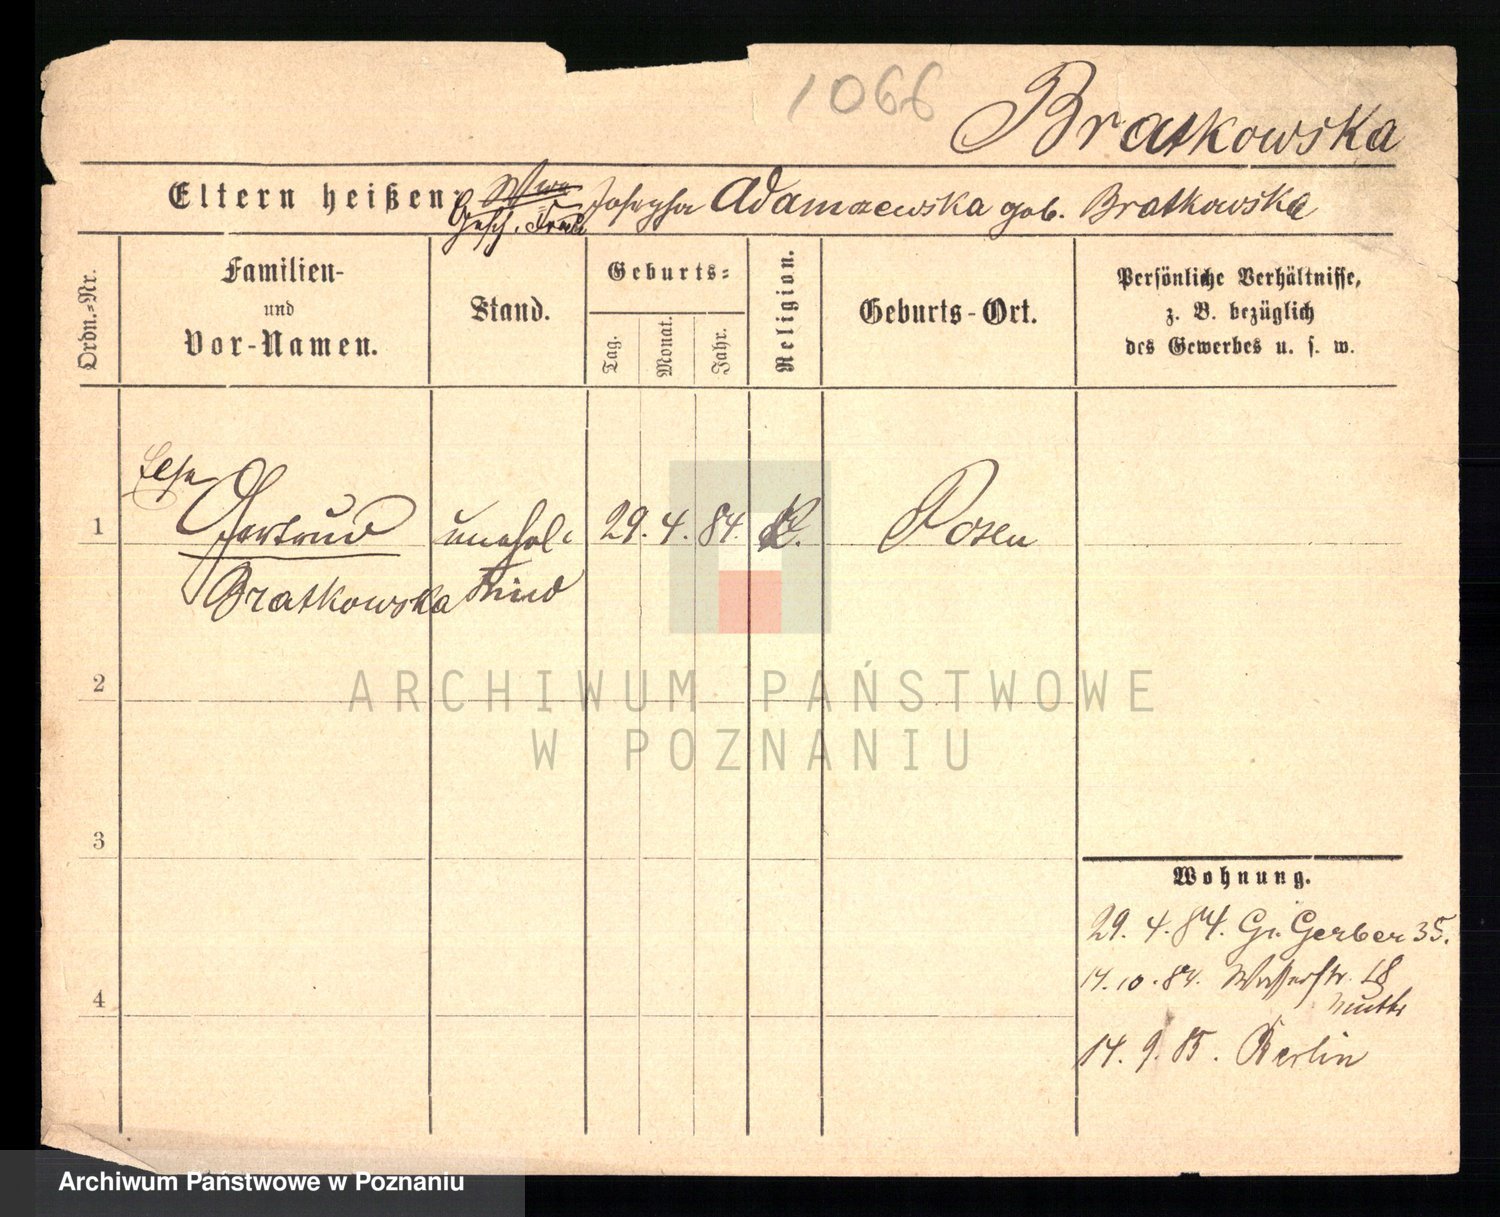 1066
Bratkowska
Eltern heißen: Wwe Josepha Adamzewska geb. Bratkowska
Gesch. Frau
Ordn.-Nr.
Familien-
und
Vor-Namen.
Stand.
Geburts-
Tag.
Monat.
Jahr.
Religion.
Geburts-Ort.
Persönliche Verhältnisse,
z. B. bezüglich
des Gewerbes u. s. w.
1 Gertrud unehel. 29. 4. 84. K. Posen
Bratkowska Kind
2
3
4
Wohnung.
29. 4. 84. Gr. Gerber 35.
14. 10. 84. Wasserstr. 18
14. 9. 85. Berlin
ARCHIWUM PAŃSTWOWE
W POZNANIU
Archiwum Państwowe w Poznaniu